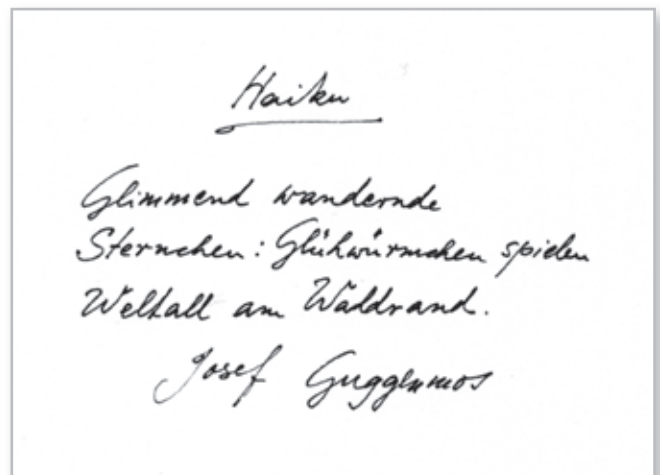 Haiku
Glimmend wandernde
Sternchen: Glühwürmchen spielen
Weltall am Waldrand.
Josef Guggenmos